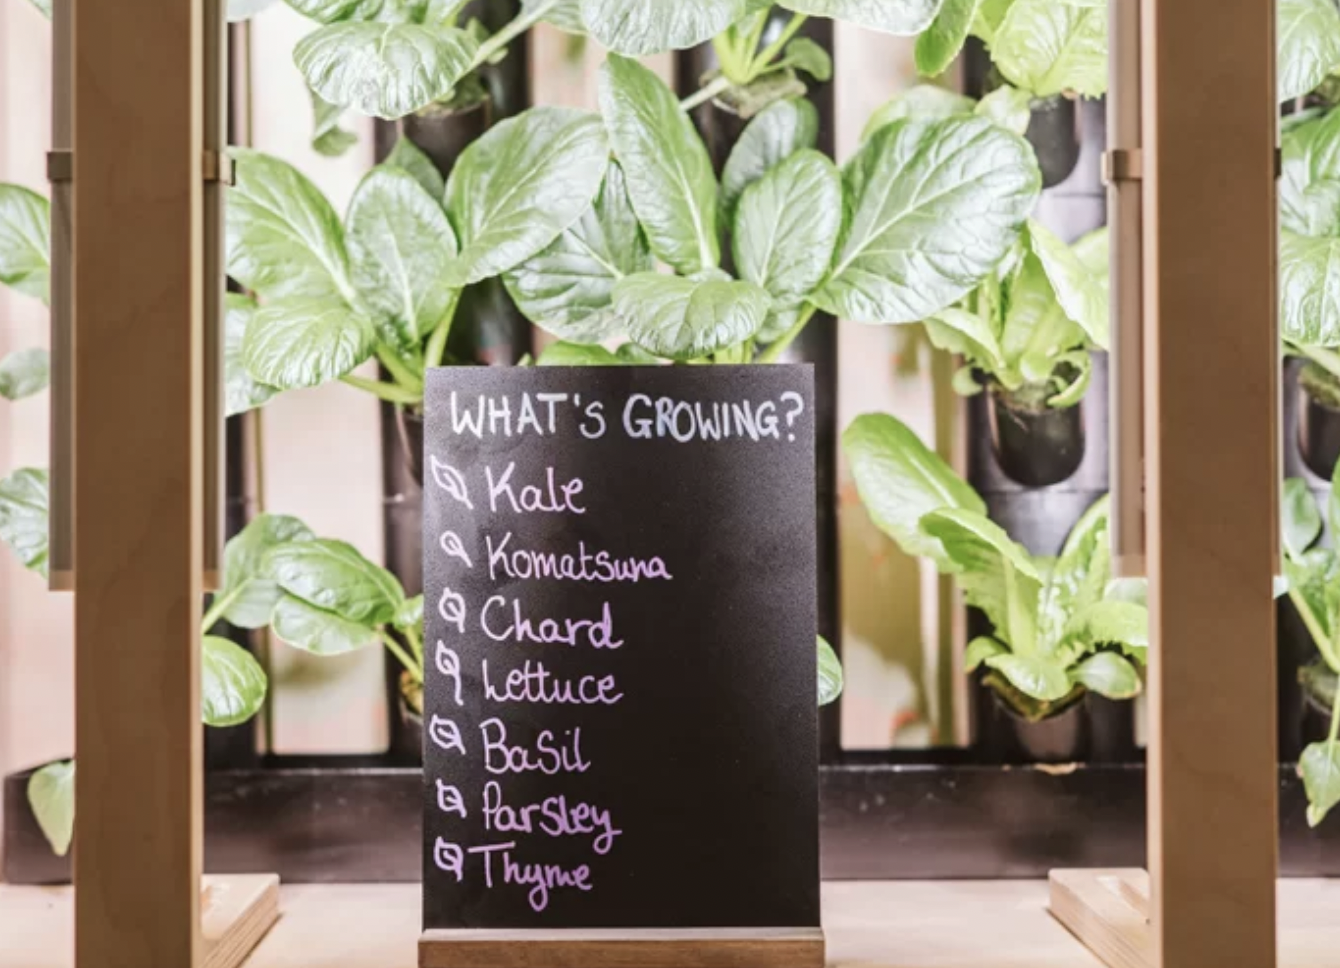 WHAT'S GROWING?
Kale
Komatsuna
Chard
Lettuce
Basil
Parsley
Thyme